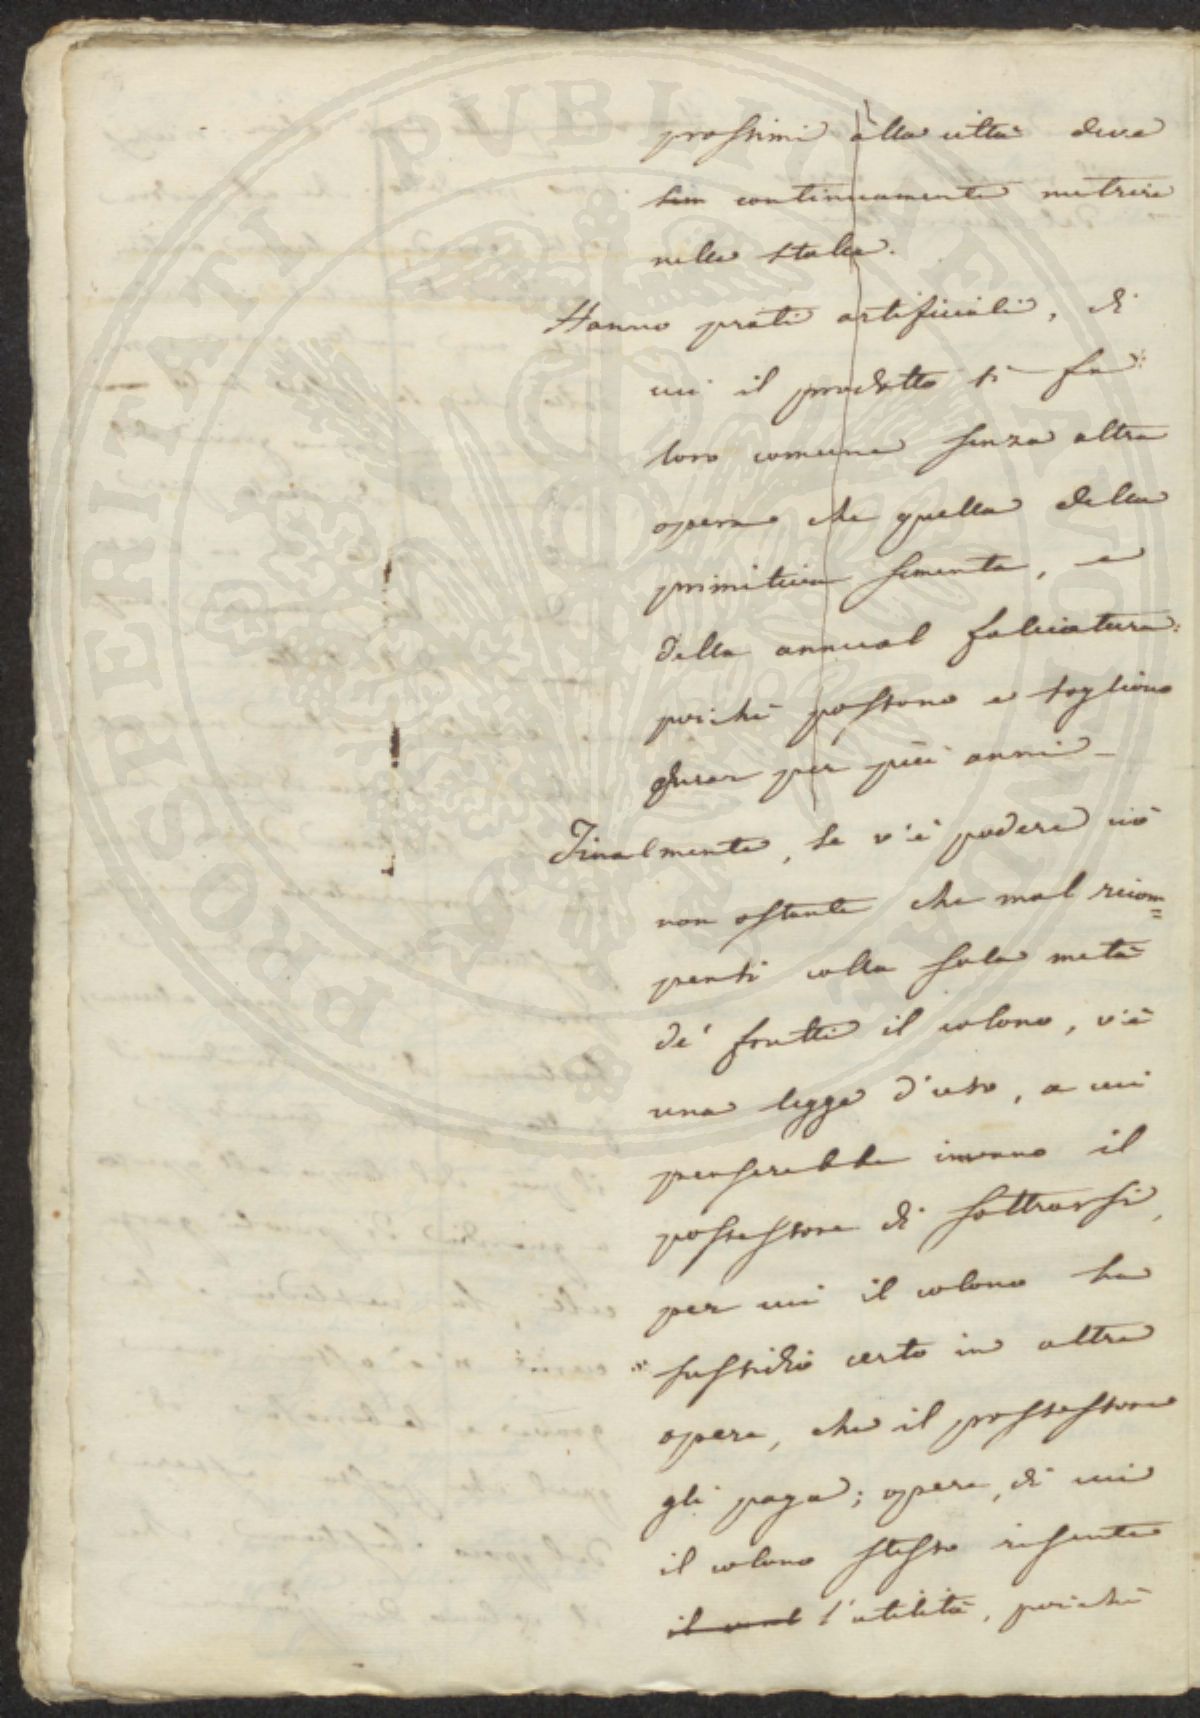 prossimi alla città deve
sem continuamente nutrire
nella stalla.
Hanno prati artificiali, di
cui il prodotto si fa
loro comune senza altra
opera che quella della
primitiva sementa, e
della annual falciatura:
poichè possono e sogliono
durar per più anni_
Finalmente, se v'è podere ciò
non ostante che mal ricom=
pensi colla sola metà
de' frutti il colono, v'è
una legge d'uso, a cui
penserebbe invano il
possessore di sottrarsi,
per cui il colono ha
sussidio certo in altre
opere, che il possessore
gli paga; opere, di cui
il colono stesso risente
il l'utilità, poichè
PROSPERITATI PVBLICAE AVGENDAE